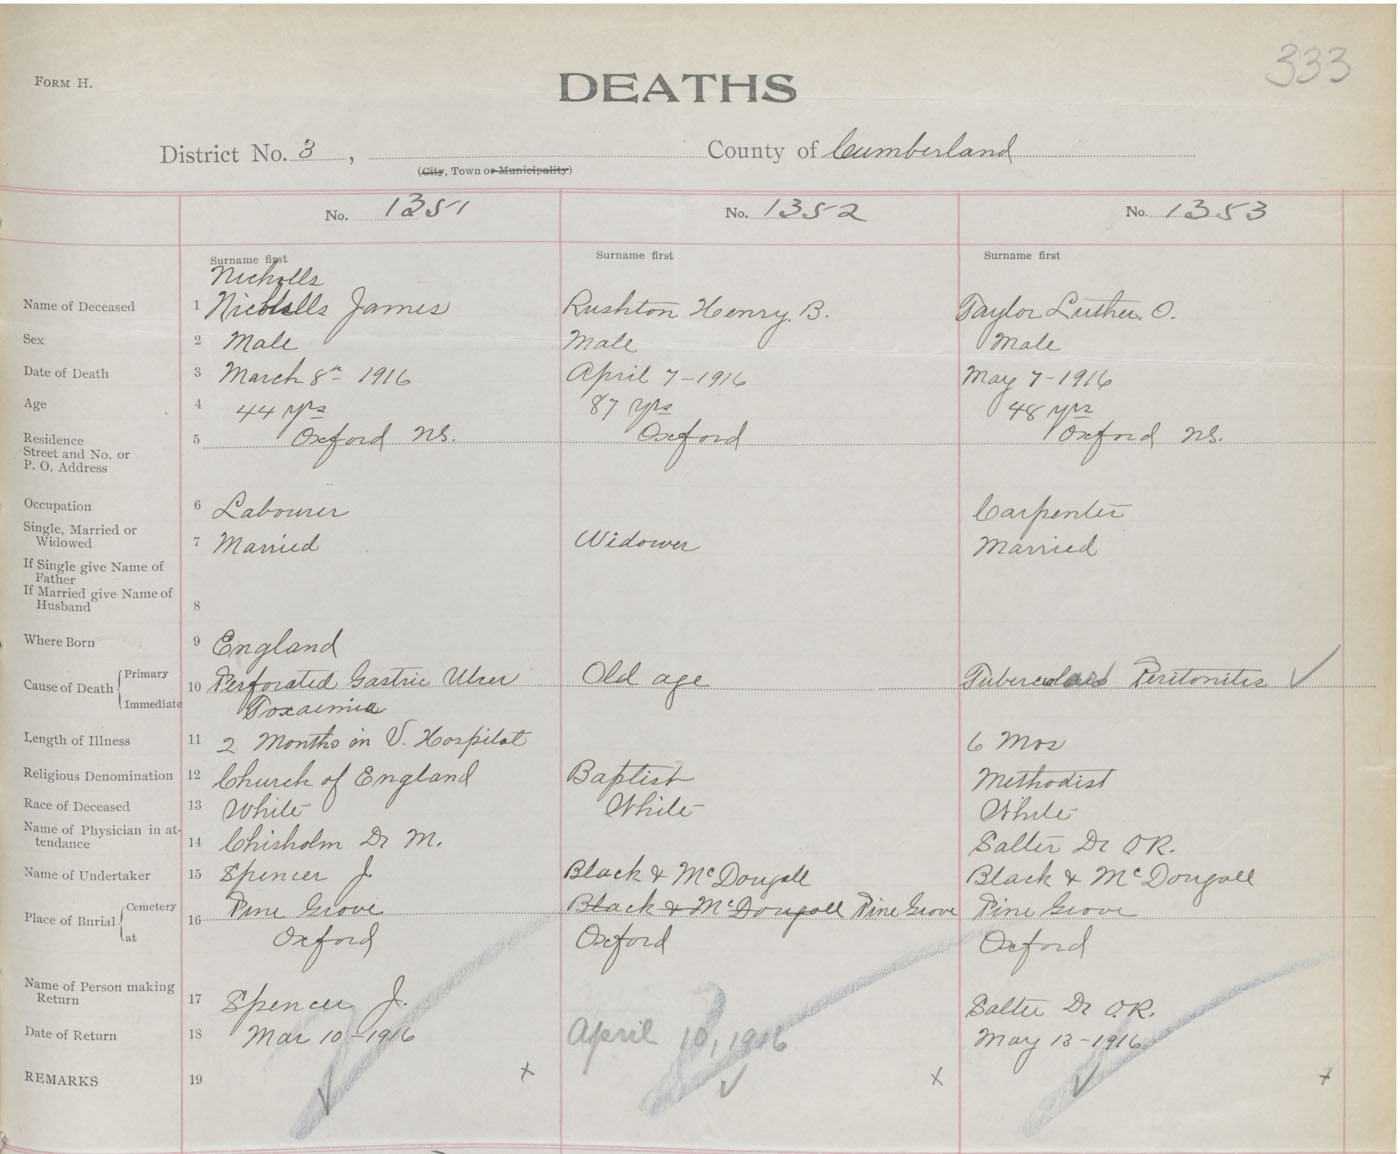 333
FORM H.
DEATHS
District No. 3, County of Cumberland
(City, Town or Municipality)
No. 1351 No. 1352 No. 1353
Surname first Surname first Surname first
Nicholls
Name of Deceased 1 Nicholls James Rushton Henry. B. Taylor Luther. O.
Sex 2 Male Male Male
Date of Death 3 March 8th 1916 April 7-1916 May 7-1916
Age 4 44 yrs 87 yrs 48 yrs
Residence 5 Oxford N.S. Oxford Oxford N.S.
Street and No. or
P. O. Address
Occupation 6 Labourer Carpenter
Single, Married or
Widowed 7 Married Widower Married
If Single give Name of
Father
If Married give Name of
Husband 8
Where Born 9 England
Cause of Death { Primary 10 Perforated Gastric Ulcer Old age Tubercular Peritonitis ✓
Immediate Toxaemia
Length of Illness 11 2 Months in V. Hospital 6 Mos
Religious Denomination 12 Church of England Baptist Methodist
Race of Deceased 13 White White White
Name of Physician in at-
tendance 14 Chisholm Dr M. Salter Dr O.R.
Name of Undertaker 15 Spencer J. Black & McDougall Black & McDougall
Place of Burial { Cemetery 16 Pine Grove Black & McDougall Pine Grove Pine Grove
at Oxford Oxford Oxford
Name of Person making
Return 17 Spencer J. Salter Dr O.R.
Date of Return 18 Mar 10-1916 April 10, 1916 May 13-1916
REMARKS 19 ✓ x ✓ x ✓ x